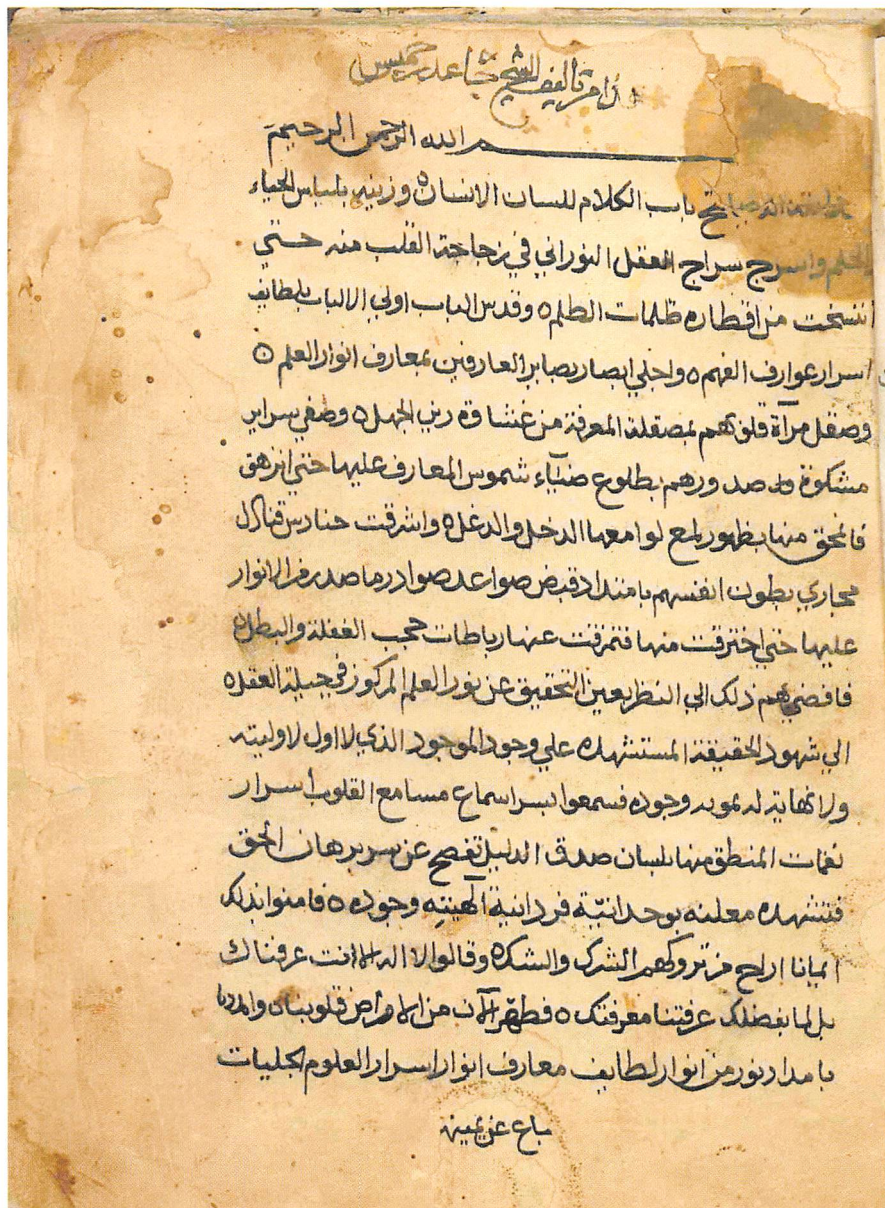 هذا من تأليف الشيخ جاعد بن خميس
بسم الله الرحمن الرحيم
باب الكلام للسان الانسان ه وزينه بلباس الحياء
والحلم واسرج سراج العقل النوراني في زجاجة القلب منه حتي
انتسخت من اقطاره ظلمات الظلم ه وقدس الباب اولي الالباب بلطايف
اسرار عوارف الفهم ه واجلي ابصار بصاير العارفين بمعارف انوار العلم ه
وصقل مرآة قلوبهم بمصقلة المعرفة من غشاوة رين الجهل ه وصفي سراير
مشكوة صدورهم بطلوع ضيآء شموس المعارف عليها حتي انزهق
فانمحق منها بظهور لمع لوامعها الدخل والدغل ه واشرقت حنادس
مجاري بطون انفسهم بامتداد قبض صواعد صوادر ما صدر من الانوار
عليها حتي اخترقت منها فتمزقت عنها رباطات حجب الغفلة والبطل ه
فافضي بهم ذلك الي النظر بعين التحقيق عن نور العلم المركوز في جبلة العقل ه
الي شهود الحقيقة المستشهده علي وجود الموجود الذي لا اول لاوليته
ولا نهاية لديمومه وجوده فسمعوا بسر اسماع مسامع القلوب اسرار
نغمات المنطق منها بلسان صدق الدليل تفصح عن سر برهان الحق
فتشهده معلنه بوحدانيّة فردانية آلهيته وجوده ه فامنوا بذلك
ايمانا ازاح من تروكهم الشرك والشك ه وقالوا لا اله الا انت عرفناك
بل لما بفضلك عرفتنا معرفتك ه فطهر الآن من الامراض قلوبنا ه وامددنا
بامداد نور من انوار لطايف معارف انوار اسرار العلوم الجليات
باع عن يمين